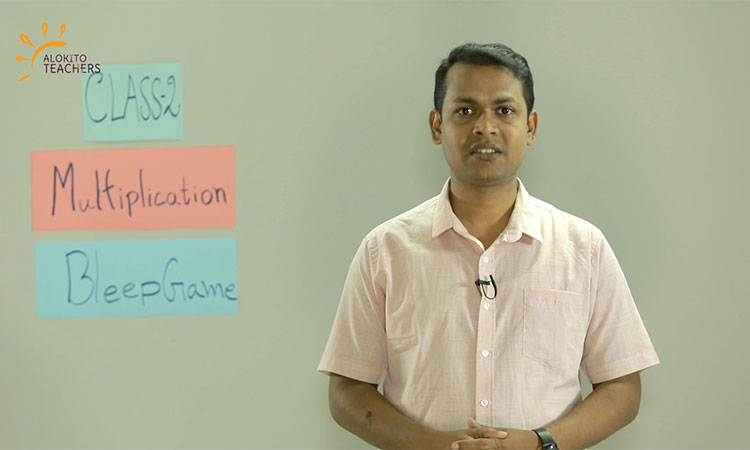 ALOKITO
TEACHERS
CLASS-2
Multiplication
BleepGame